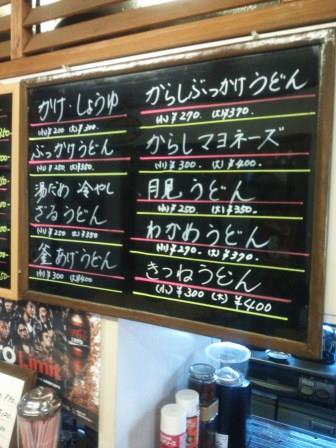 かけ・しょうゆ
(小)¥200 (大)¥300.
ぶっかけうどん
(小)¥250. (大)¥350.
湯だめ 冷やし
ざるうどん
(小)¥250 (大)¥350
釜あげうどん
(小)¥300 (大)¥400
からしぶっかけうどん
(小)¥270. (大)¥370.
からしマヨネーズ
(小)¥300. (大)¥400.
月見うどん
(小)¥250. (大)¥350.
わかめうどん
(小)¥290. (大)¥390.
きつねうどん
(小)¥300 (大)¥400
Limit